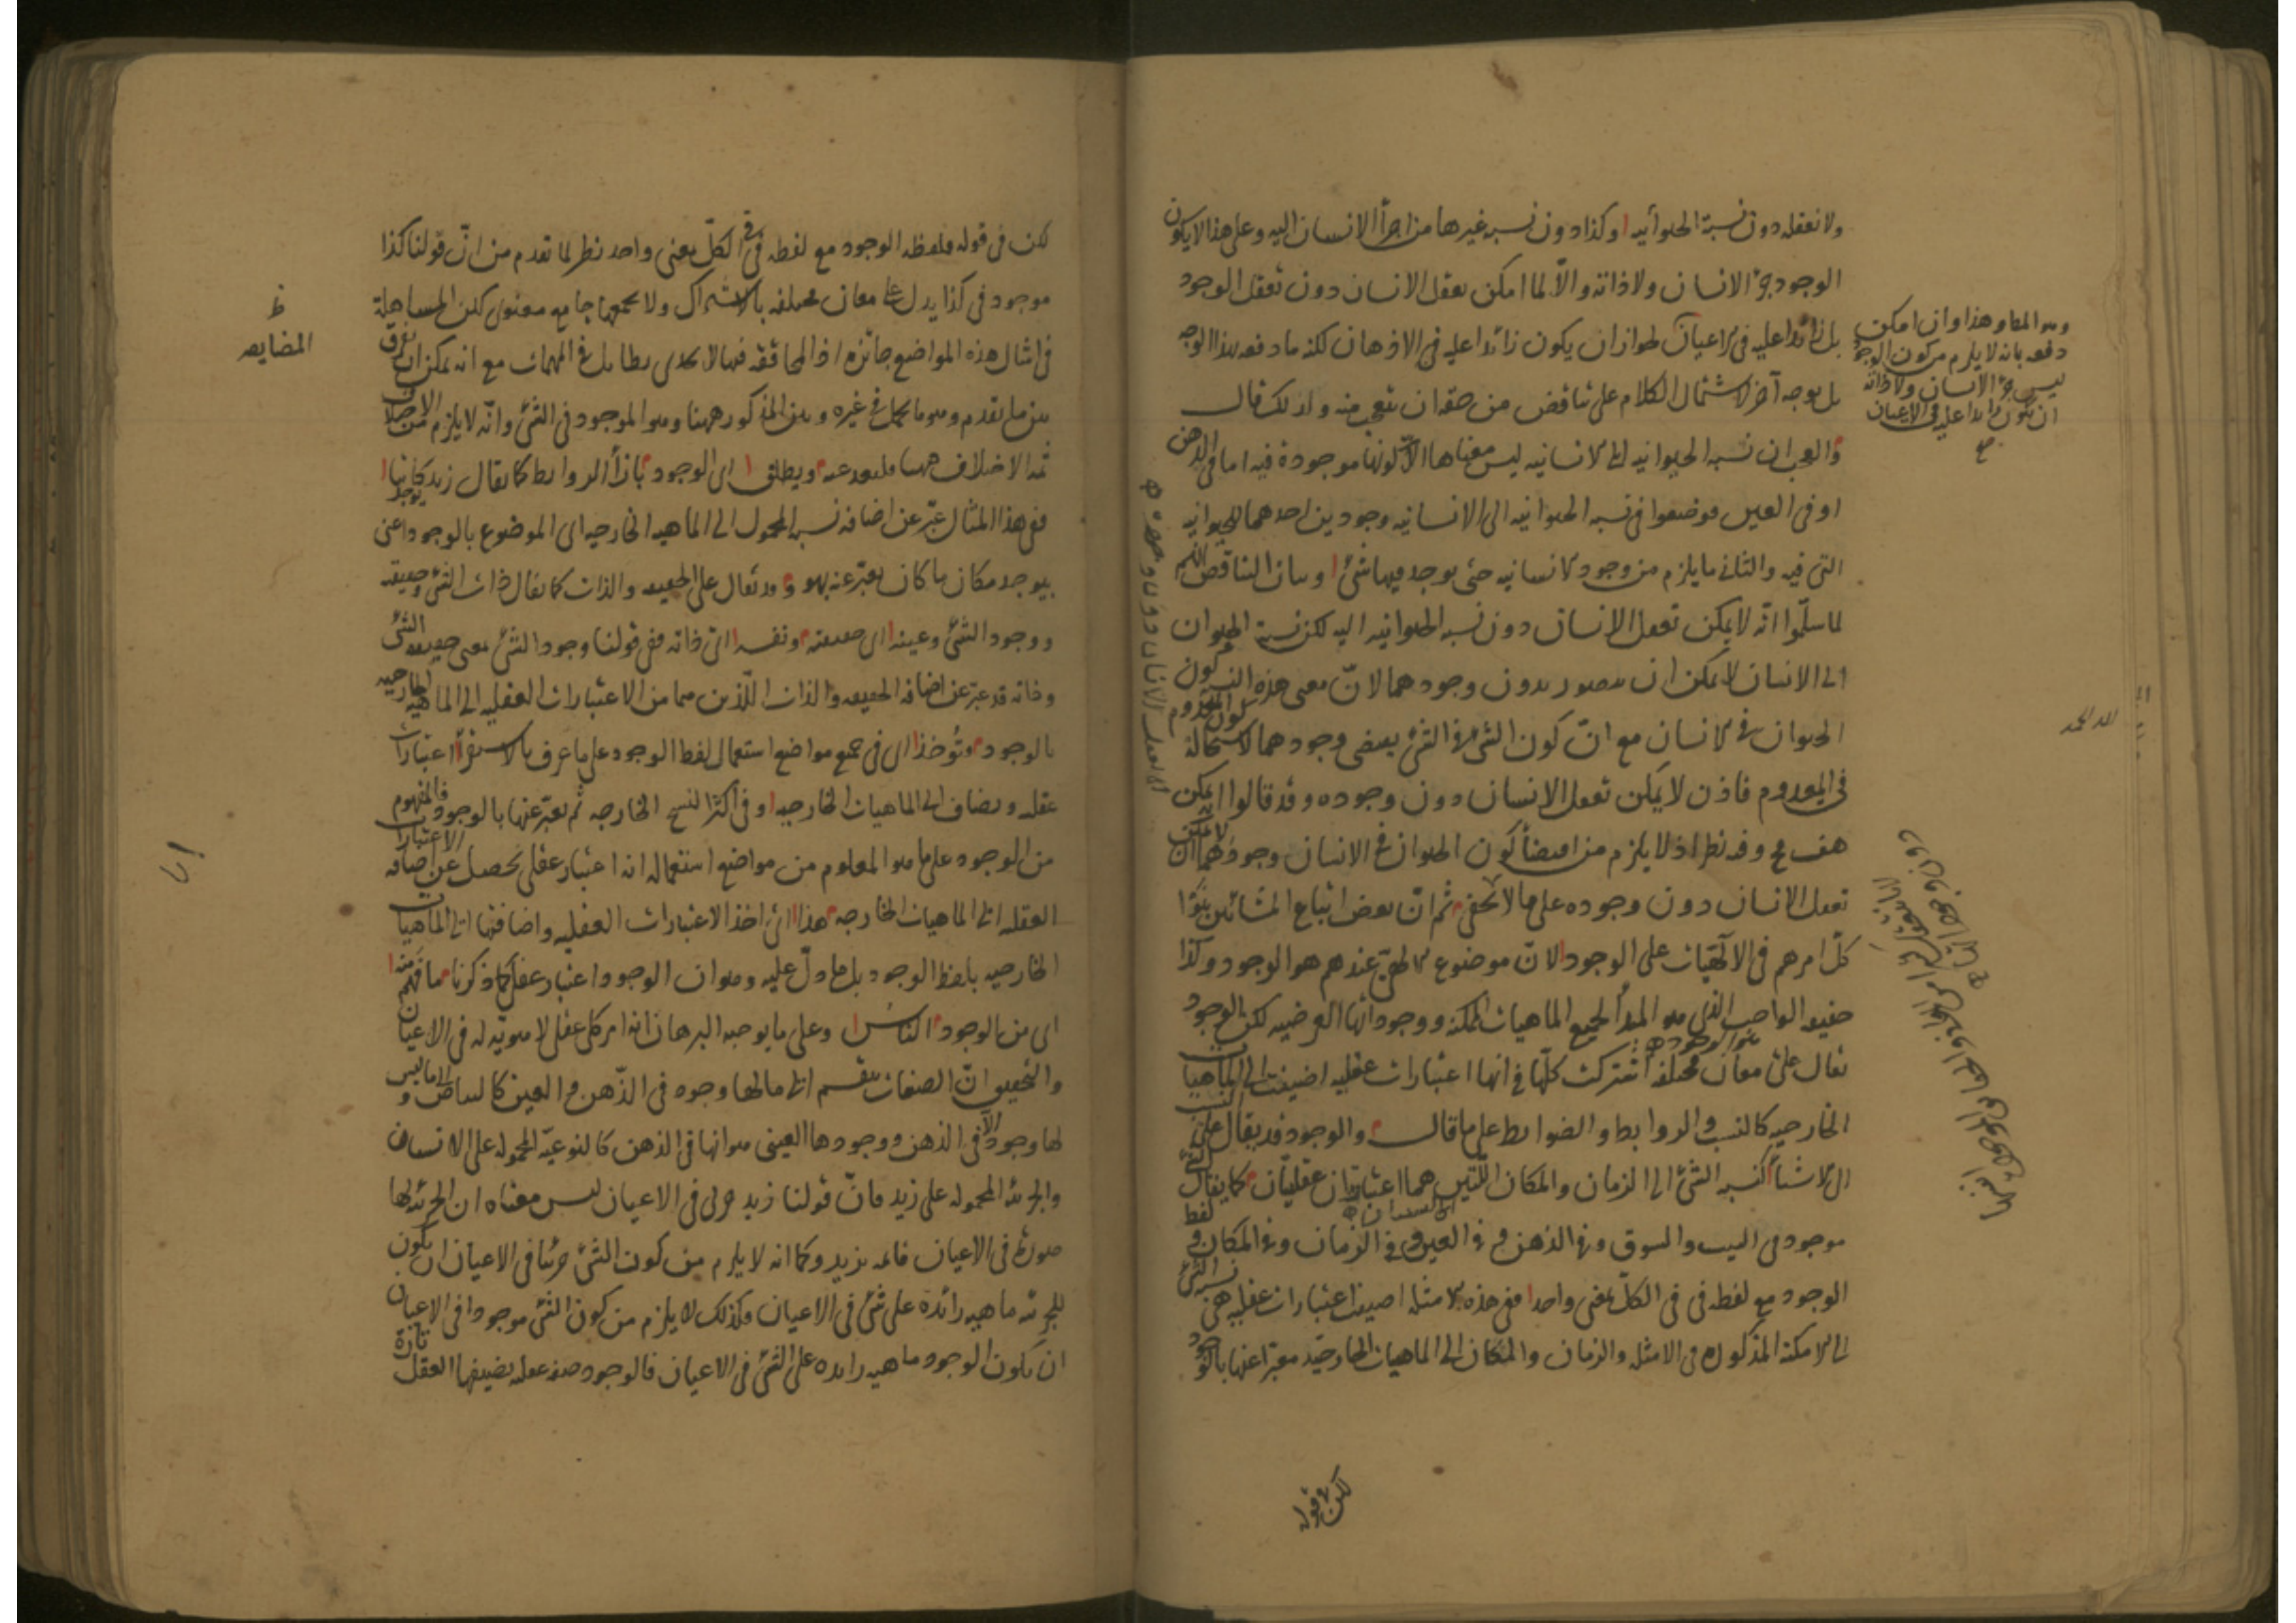 ولا نعقله دون نسبة الحيوانيه اليه وكذا دون نسبه غيرها من اجزأ الانسان اليه وعلى هذا لا يكون
الوجود جزء الانسان ولا ذاته والّا لما امكن تعقل الانسان دون تعقل الوجود
بل زائدا عليه فى الاعيان لجواز ان يكون زائدا عليه فى الاذهان لكنه ما دفعه بهذا الوجه
بل بوجه آخر لاشتمال الكلام على تناقض من حقه ان يتعجب منه ولذلك قال
والعجب ان نسبه الحيوانيه الى الانسانيه ليس معناها الّا كونها موجودة فيه اما فى الذهن
او فى العين فوضعوا فى نسبه الحيوانيه الى الانسانيه وجودين احدهما للحيوانيه
التى فيه والثانى ما يلزم من وجود الانسانيه حتى يوجد فيها شئ وبيان التناقض انهم
لما سلّموا انّه لا يمكن تعقل الانسان دون نسبه الحيوانيه اليه لكن نسبة الحيوان
الى الانسان لا يمكن ان يتصور بدون وجودهما لانّ معنى هذه النسبة كون
الحيوان فى الانسان مع انّ كون الشئ فى الشئ يقتضى وجودهما لاستحالة كون المعدوم
فى المعدوم فاذن لا يمكن تعقل الانسان دون وجوده وقد قالوا انه يمكن
هف وفيه نظر اذ لا يلزم من اقتضأ كون الحيوان فى الانسان وجودهما ان لا يمكن
تعقل الانسان دون وجوده على ما لا يخفى ثم انّ بعض اتباع المشائين بنوا
كلّ امرهم فى الآلهيات على الوجود لانّ موضوع الالهى عندهم هو الوجود وكذا
حقيقه الواجب الذى هو المبدأ لجميع الماهيات الممكنه ووجوداتها العرضيه لكن الوجود
يقال على معان مختلفه اشتركت كلّها فى انها اعتبارات عقليه اضيفت الى الماهيات
الخارجيه كالنسب والروابط والضوابط على ما قال والوجود قد يقال على النسب
الى الاشيأ كنسبه الشئ الى الزمان والمكان اللّتين هما اعتباران عقليّان كما يقال الشئ
موجود فى البيت والسوق وفى الذهن وفى العين وفى الزمان وفى المكان ولفظ
الوجود مع لفظه فى فى الكلّ بمعنى واحد ففى هذه الامثله اضيف اعتبارات عقليه هى نسبه الشئ
الى الامكنة المذكوره فى الامثله والزمان والمكان الى الماهيات الخارجيّه معبّرا عنها بالوجود
لكن فى قوله
وهو المط وهذا وان امكن
دفعه بانه لا يلزم من كون الوجود
ليس جزء الانسان ولا ذاته
ان يكون زائدا عليه فى الاعيان
صح
لله الحمد
لكن فى قوله فلفظه الوجود مع لفظه فى فى الكلّ بمعنى واحد نظر لما تقدم من انّ قولنا كذا
موجود فى كذا يدل على معان مختلفه بالاشتراك ولا يجمعها جامع معنوى لكن المساهلة
فى امثال هذه المواضع جائزه اذ المحاققه فيها لا يجدى بطايل فى المهمات مع انه يمكن ان يفرق
بين ما تقدم وهو ما يحل فى غيره وبين المذكور ههنا وهو الموجود فى الشئ وانّه لا يلزم من الاختلاف
ثمه الاختلاف ههنا ويطلق اى الوجود بازأ الروابط كما يقال زيد يوجد كاتبا
ففى هذا المثال عبّر عن اضافه نسبه المحمول الى الماهيه الخارجيه اى الموضوع بالوجود اعنى
بيوجد مكان ما كان يعبّر عنه بهو وقد يقال على الحقيقه والذات كما يقال ذات الشئ وحقيقته
ووجود الشئ وعينه اى حقيقته ونفسه اى ذاته ففى قولنا وجود الشئ بمعنى حقيقه الشئ
وذاته قد عبّر عن اضافه الحقيقه والذات اللّذين هما من الاعتبارات العقليه الى الماهيه الخارجيه
بالوجود وتؤخذ اى فى جميع مواضع استعمال لفظ الوجود على ما عرف بالاستقرأ اعتبارات
عقليه ويضاف الى الماهيات الخارجيه وفى اكثر النسخ الخارجه ثم يعبّر عنها بالوجود فالمفهوم
من الوجود على ما هو المعلوم من مواضع استعماله انه اعتبار عقلى يحصل عن اضافه الاعتبارات
العقليه الى الماهيات الخارجه هذا اى اخذ الاعتبارات العقليه واضافتها الى الماهيات
الخارجيه بلفظ الوجود بل ما دلّ عليه وهو ان الوجود اعتبار عقلى كما ذكرنا ما فهم منه
اى من الوجود الناس وعلى ما يوجبه البرهان انه امر كلى عقلى لا هويّه له فى الاعيان
والتحقيق انّ الصفات ينقسم الى ما لها وجود فى الذّهن والعين كالبياض والى ما ليس
لها وجود الّا فى الذهن ووجودها العينى هو انها فى الذهن كالنوعيّه المحموله على الانسان
والجزئيه المحموله على زيد فانّ قولنا زيد جزئى فى الاعيان ليس معناه ان الجزئيه لها
صورة فى الاعيان قائمه بزيد وكما انه لا يلزم من كون الشئ جزئيا فى الاعيان ان يكون
للجزئيه ماهيه زائدة على شئ فى الاعيان فكذلك لا يلزم من كون الشئ موجودا فى الاعيان
ان يكون الوجود ماهيه زايده على الشئ فى الاعيان فالوجود صفه عقليه يضيفها العقل تارة
ظ
المضايقه